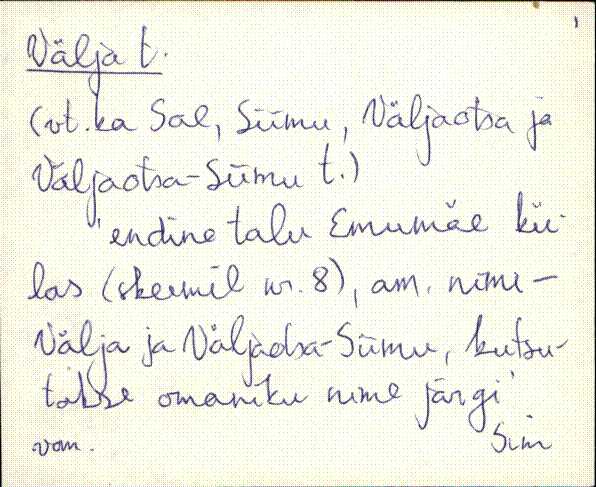 Välja t.
(vt. ka Sae, Siimu, Väljaotsa ja
Väljaotsa-Siimu t.)
'endine talu Emumäe kü-
las (skeemil nr. 8), am. nimi -
Välja ja Väljaotsa-Siimu, kutsu-
takse omaniku nime järgi'
vom. Sim